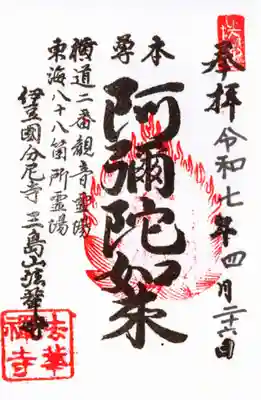 奉拝 令和七年四月二十六日
本尊
阿彌陀如来
横道二番観音霊場
東海八十八箇所霊場
伊豆國分尼寺 三島山法華寺